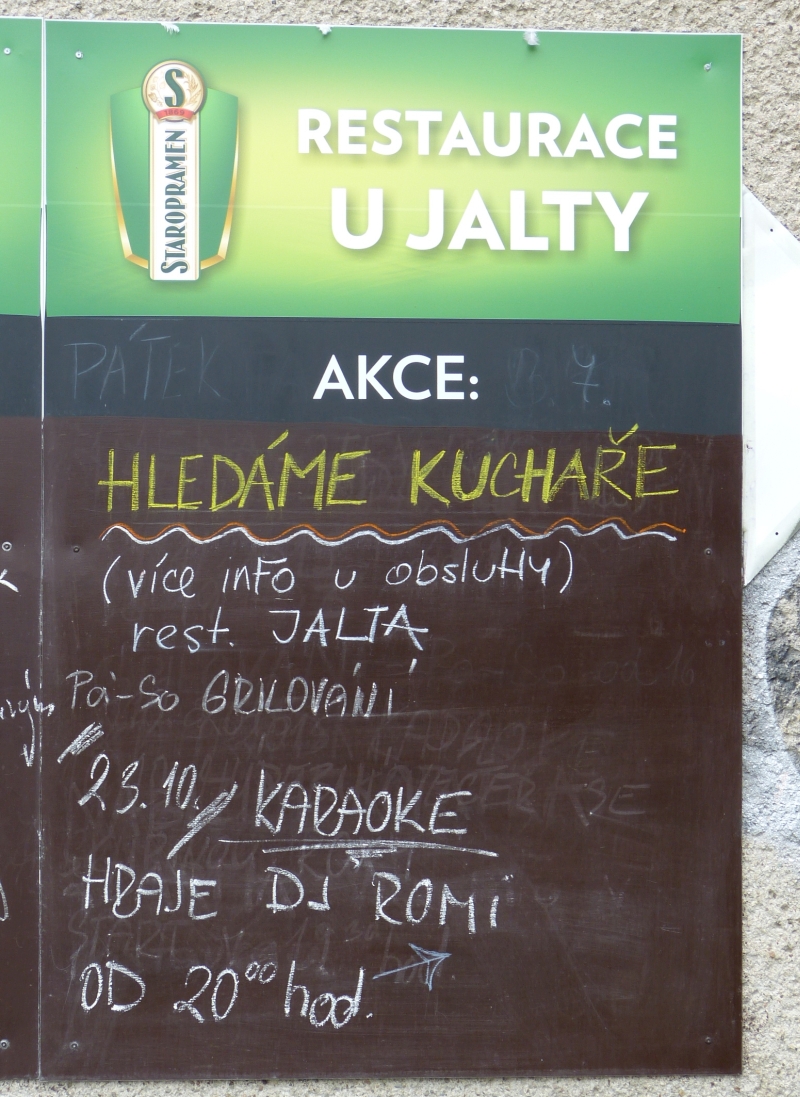 S
1869
STAROPRAMEN
RESTAURACE
U JALTY
PÁTEK
AKCE:
7.
HLEDÁME KUCHAŘE
(více info u obsluhy)
rest. JALTA
Pá-So GRILOVÁNÍ
23.10. KARAOKE
HRAJE DJ ROMI
OD 20⁰⁰ hod.